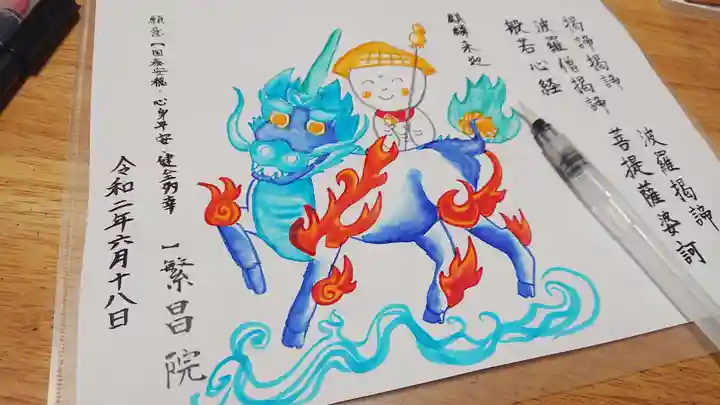 羯諦羯諦
波羅僧羯諦
般若心経
波羅羯諦
菩提薩婆訶
麒麟来迎
願意【国泰安穏・心身平安・健全多幸】
繁昌院
令和二年六月十八日